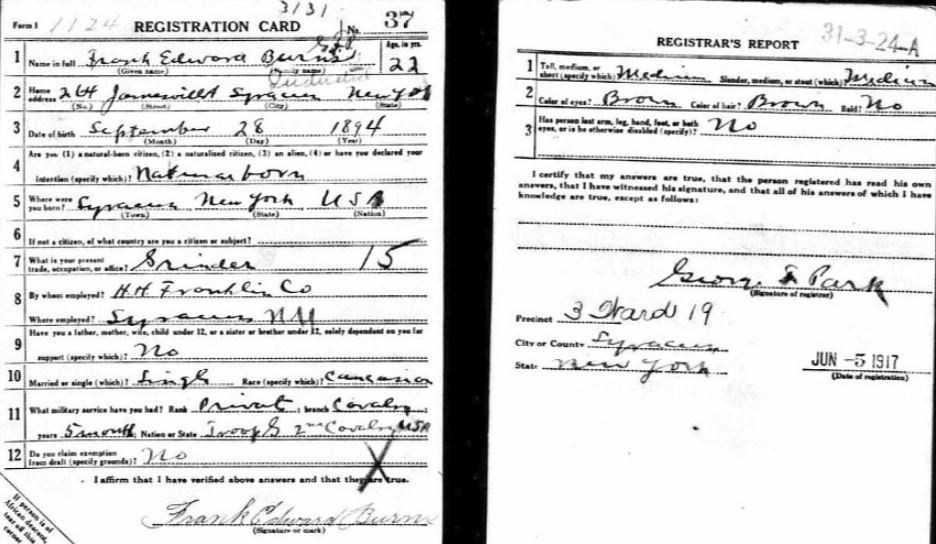 3131
Form 1 1124 REGISTRATION CARD No. 37
1 Name in full Frank Edward Burns Age, in yrs. 22
(Given name) (Family name)
2 Home address 264 Syracuse New York
(No.) (Street) (City) (State)
3 Date of birth September 28 1894
(Month) (Day) (Year)
Are you (1) a natural-born citizen, (2) a naturalized citizen, (3) an alien, (4) or have you declared your
4 intention (specify which)? Natural born
5 Where were you born? Syracuse New York USA
(Town) (State) (Nation)
6 If not a citizen, of what country are you a citizen or subject?
7 What is your present trade, occupation, or office? Grinder 15
8 By whom employed? H.H. Franklin Co
Where employed? Syracuse NY
9 Have you a father, mother, wife, child under 12, or a sister or brother under 12, solely dependent on you for
support (specify which)? No
10 Married or single (which)? Single Race (specify which)? Caucasian
11 What military service have you had? Rank Private ; branch Cavalry ;
years 5 month ; Nation or State Troop G 2nd Cavalry USA
12 Do you claim exemption from draft (specify grounds)? No
X
I affirm that I have verified above answers and that they are true.
Frank Edward Burns
(Signature or mark)
If person is of
African descent,
tear off this
corner
31-3-24-A
REGISTRAR'S REPORT
1 Tall, medium, or short (specify which)? Medium Slender, medium, or stout (which)? Medium
2 Color of eyes? Brown Color of hair? Brown Bald? No
3 Has person lost arm, leg, hand, foot, or both eyes, or is he otherwise disabled (specify)? No
I certify that my answers are true, that the person registered has read his own
answers, that I have witnessed his signature, and that all of his answers of which I have
knowledge are true, except as follows:
George Park
(Signature of registrar)
Precinct 3 Ward 19
City or County Syracuse
State New York
JUN -5 1917
(Date of registration)